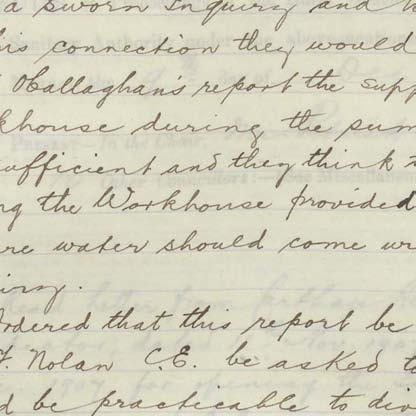 a sworn Inquiry and
his connection they would
O'Callaghan's report the supp
khouse during the sum
sufficient and they think
ng the Workhouse provided
ure water should come
iry.
Ordered that this report be
F. Nolan C.E. be asked to
d be practicable to div